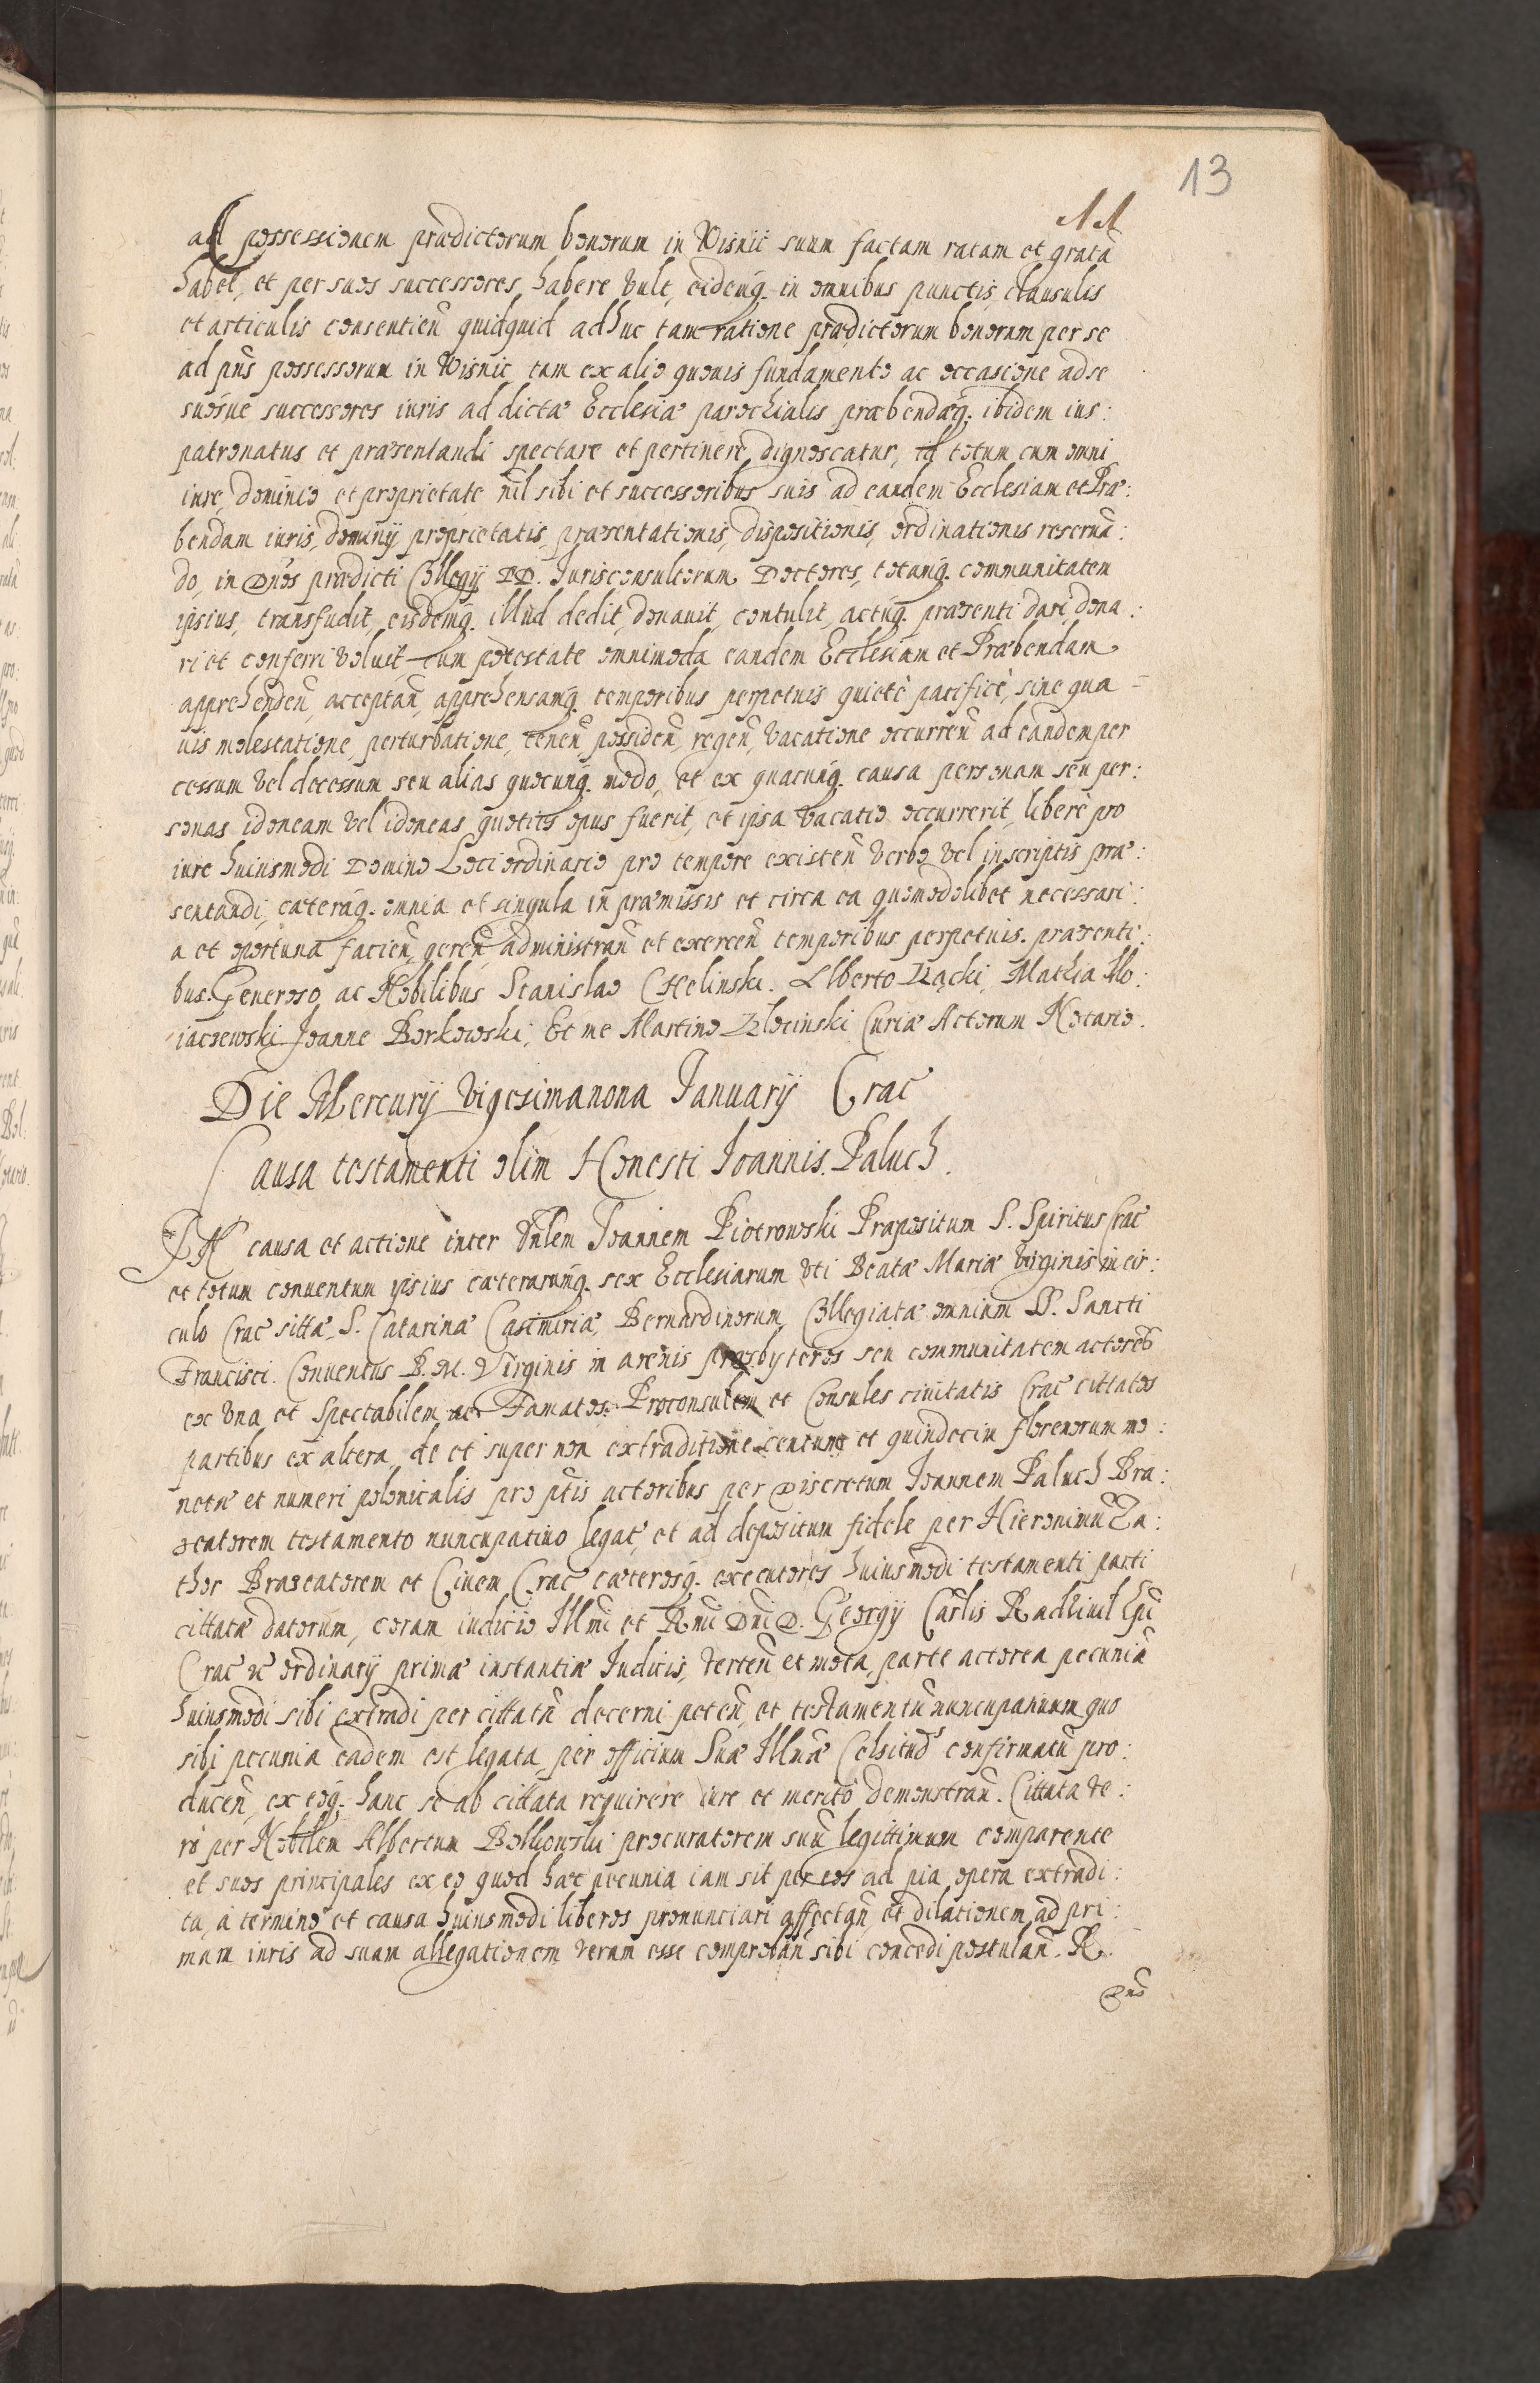 13
11
ad possessionem prædictorum bonorum in Wisnic suum factam ratam et gratã
habet, et per suos successores, habere vult, eidemq. in omnibus punctis clausulis
et articulis consentien̄ quidquid adhuc tam ratione prædictorum bonorum per se
ad pns possessorum in Wisnic, tam ex alio quouis fundamento ac occasione ad se
suosue successores iuris ad dictæ Ecclesiæ parochialis præbendæq. ibidem ius:
patronatus et præsentandi spectare et pertinere dignoscatur, id totum cum omni
iure, dominio et proprietate nil sibi et successoribus suis ad eandem Ecclesiam et Præ:
bendam iuris, dominij proprietatis, præsentationis, dispositionis, ordinationis reseruã:
do, in Dños prædicti Collegij DD. Iurisconsultorum Doctores, totamq. communitatem
ipsius, transfudit, eisdemq. illud dedit, donauit, contulit, actuq. præsenti dari, dona:
ri et conferri voluit cum potestate omnimoda eandem Ecclesiam et Præbendam
apprehenden̄, acceptan̄, apprehensamq. temporibus perpetuis quietè pacificè, sine qua =
uis molestatione, perturbatione, tenen̄, possiden̄, regen̄, vacatione occurren̄ ad eandem per
cessum vel decessum seu alias quocunq. modo, et ex quacunq. causa personam seu per:
sonas idoneam vel idoneas quoties opus fuerit, et ipsa vacatio occurrerit, liberè pro
iure huiusmodi Domino Loci ordinario pro tempore existen̄ verbo vel in scriptis præ:
sentandi, cæteraq. omnia et singula in præmissis et circa ea quomodolibet necessari:
a et oportuna facien̄, geren̄ administran̄ et exercen̄ temporibus perpetuis. præsenti:
bus. Generoso, ac Nobilibus Stanislao Chelinski. Alberto Łącki, Mathia Mo:
iaczewski Joanne Borkowski, Et me Martino Kłocinski Curiæ Actorum Notario.
Die Mercurij Vigesimanona Ianuarij Crac̃
Causa testamenti olim Honesti Joannis Paluch.
IN causa et actione inter Vnlem Joannem Piotrowski Præpositum S. Spiritus Crac̃
et totum conuentum ipsius cæterarumq. sex Ecclesiarum vti Beatæ Mariæ virginis in cir:
culo Crac̃ sittæ, S. Catarinæ Casimiriæ, Bernardinorum, Collegiatæ omnium SS. Sancti
Francisci. Conuentus B. M. Virginis in arenis presbyteros seu communitatem actores
ex vna et Spectabilem ac Famatos Proconsulem et Consules ciuitatis Crac̃ cittatos
partibus ex altera, de et super non extraditione centum et quindecim florenorum mo:
netæ et numeri polonicalis pro ptis actoribus per Discretum Joannem Paluch Bra:
xeatorem testamento nuncupatiuo legat, et ad depositum fidele per Hieronimũ Za:
ther Braxeatorem et Ciuem Crac̃ cæterosq. executores huiusmodi testamenti parti
cittatæ datorum, coram iudicio Illmi et Rmi Dni D. Georgij Carlis Radziuil Epi
Crac̃ vt ordinarij primæ instantiæ Iudicis, verten̄ et mota, parte actorea pecuniã
huiusmodi sibi extradi per cittatũ decerni peten̄, et testamentũ nuncupatiuum quo
sibi pecunia eadem est legata, per officium Suæ Illmæ Celsitud̄ confirmatũ pro:
ducen̄, ex eoq. hanc se ab cittata requirere iure et merito demonstran̄. Cittata ve:
ro per Nobilem Albertum procuratorem suũ legittimum comparente
et suos principales ex eo quod hæc pecunia iam sit per eos ad pia opera extradi:
ta, a termino et causa huiusmodi liberos pronunciari affectan̄ et dilationem ad pri:
mam iuris ad suam allegationem veram esse comproban̄ sibi concedi postulan̄. R.
Dns